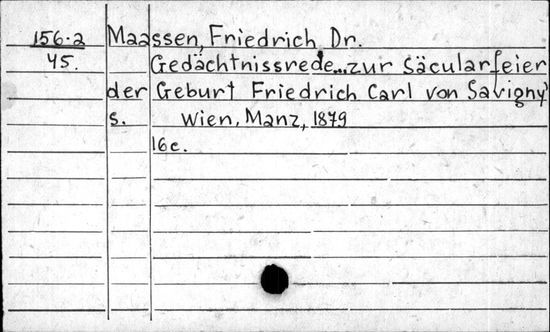 156-2 Maassen, Friedrich, Dr.
45. Gedächtnissrede...zur Säcularfeier
der Geburt Friedrich Carl von Savigny'
s. Wien, Manz, 1879
16c.